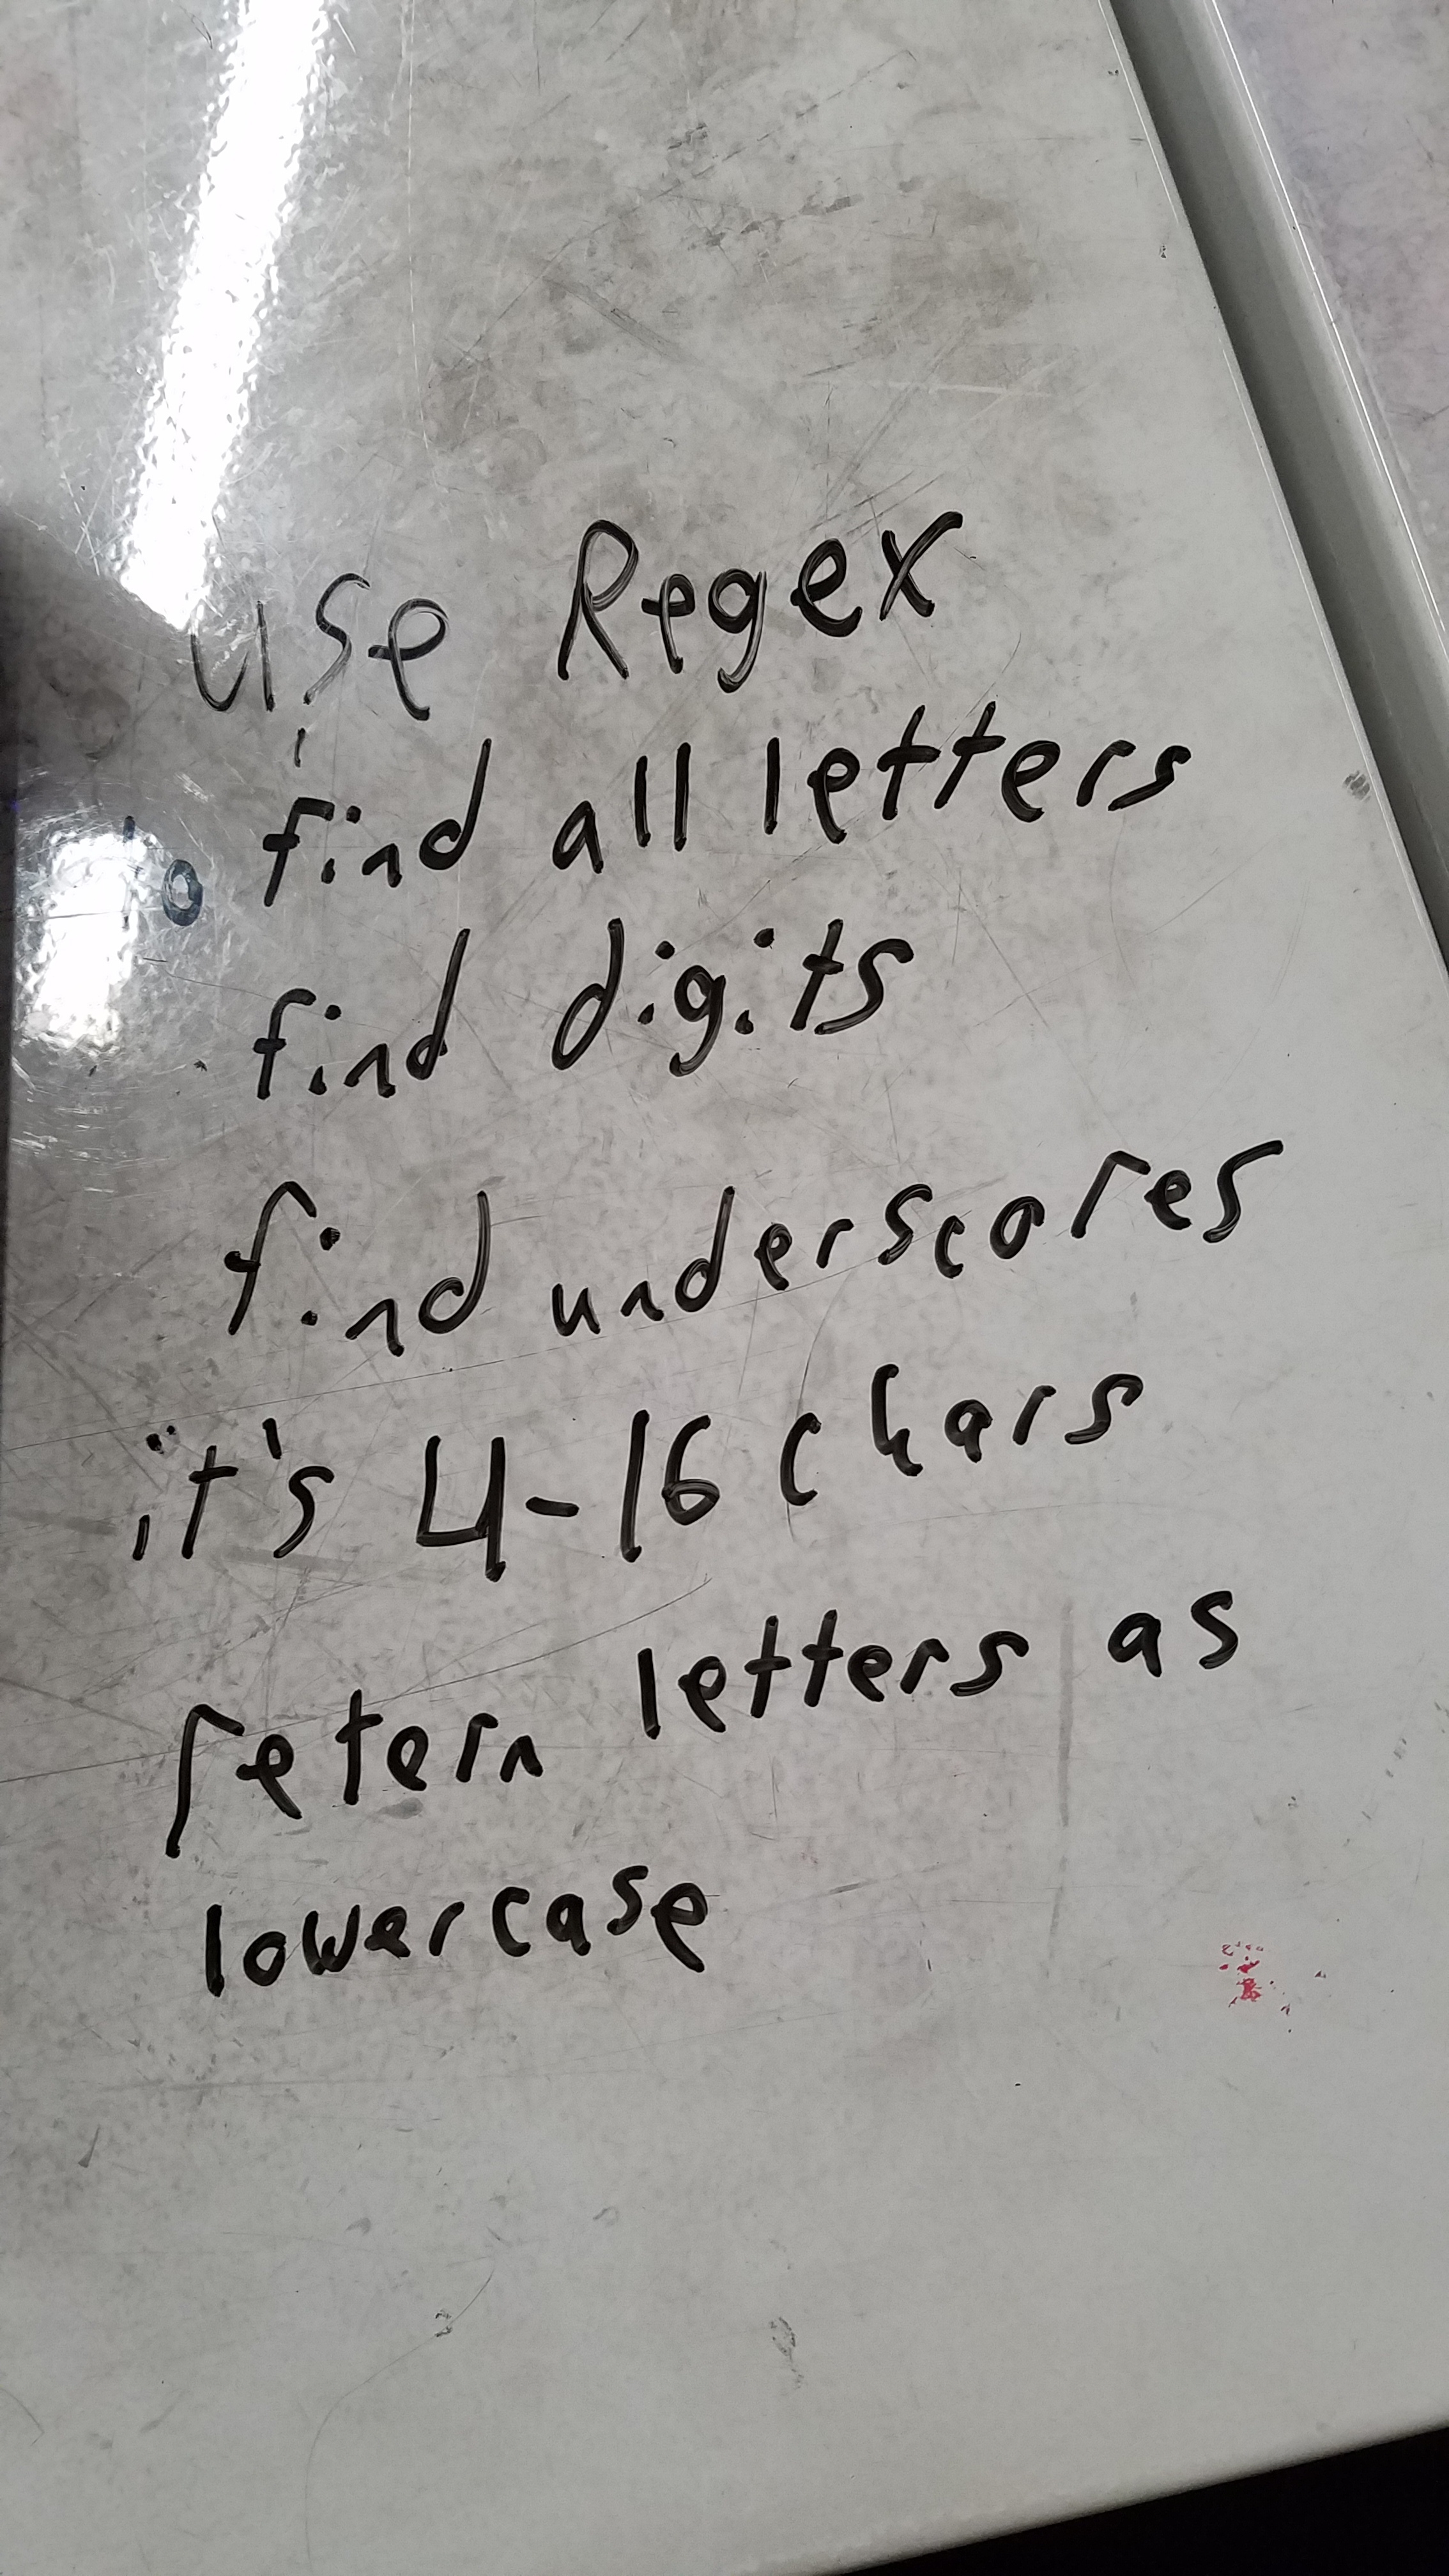 use Regex
to find all letters
find digits
find underscores
it's 4-16 chars
retern letters as
lowercase